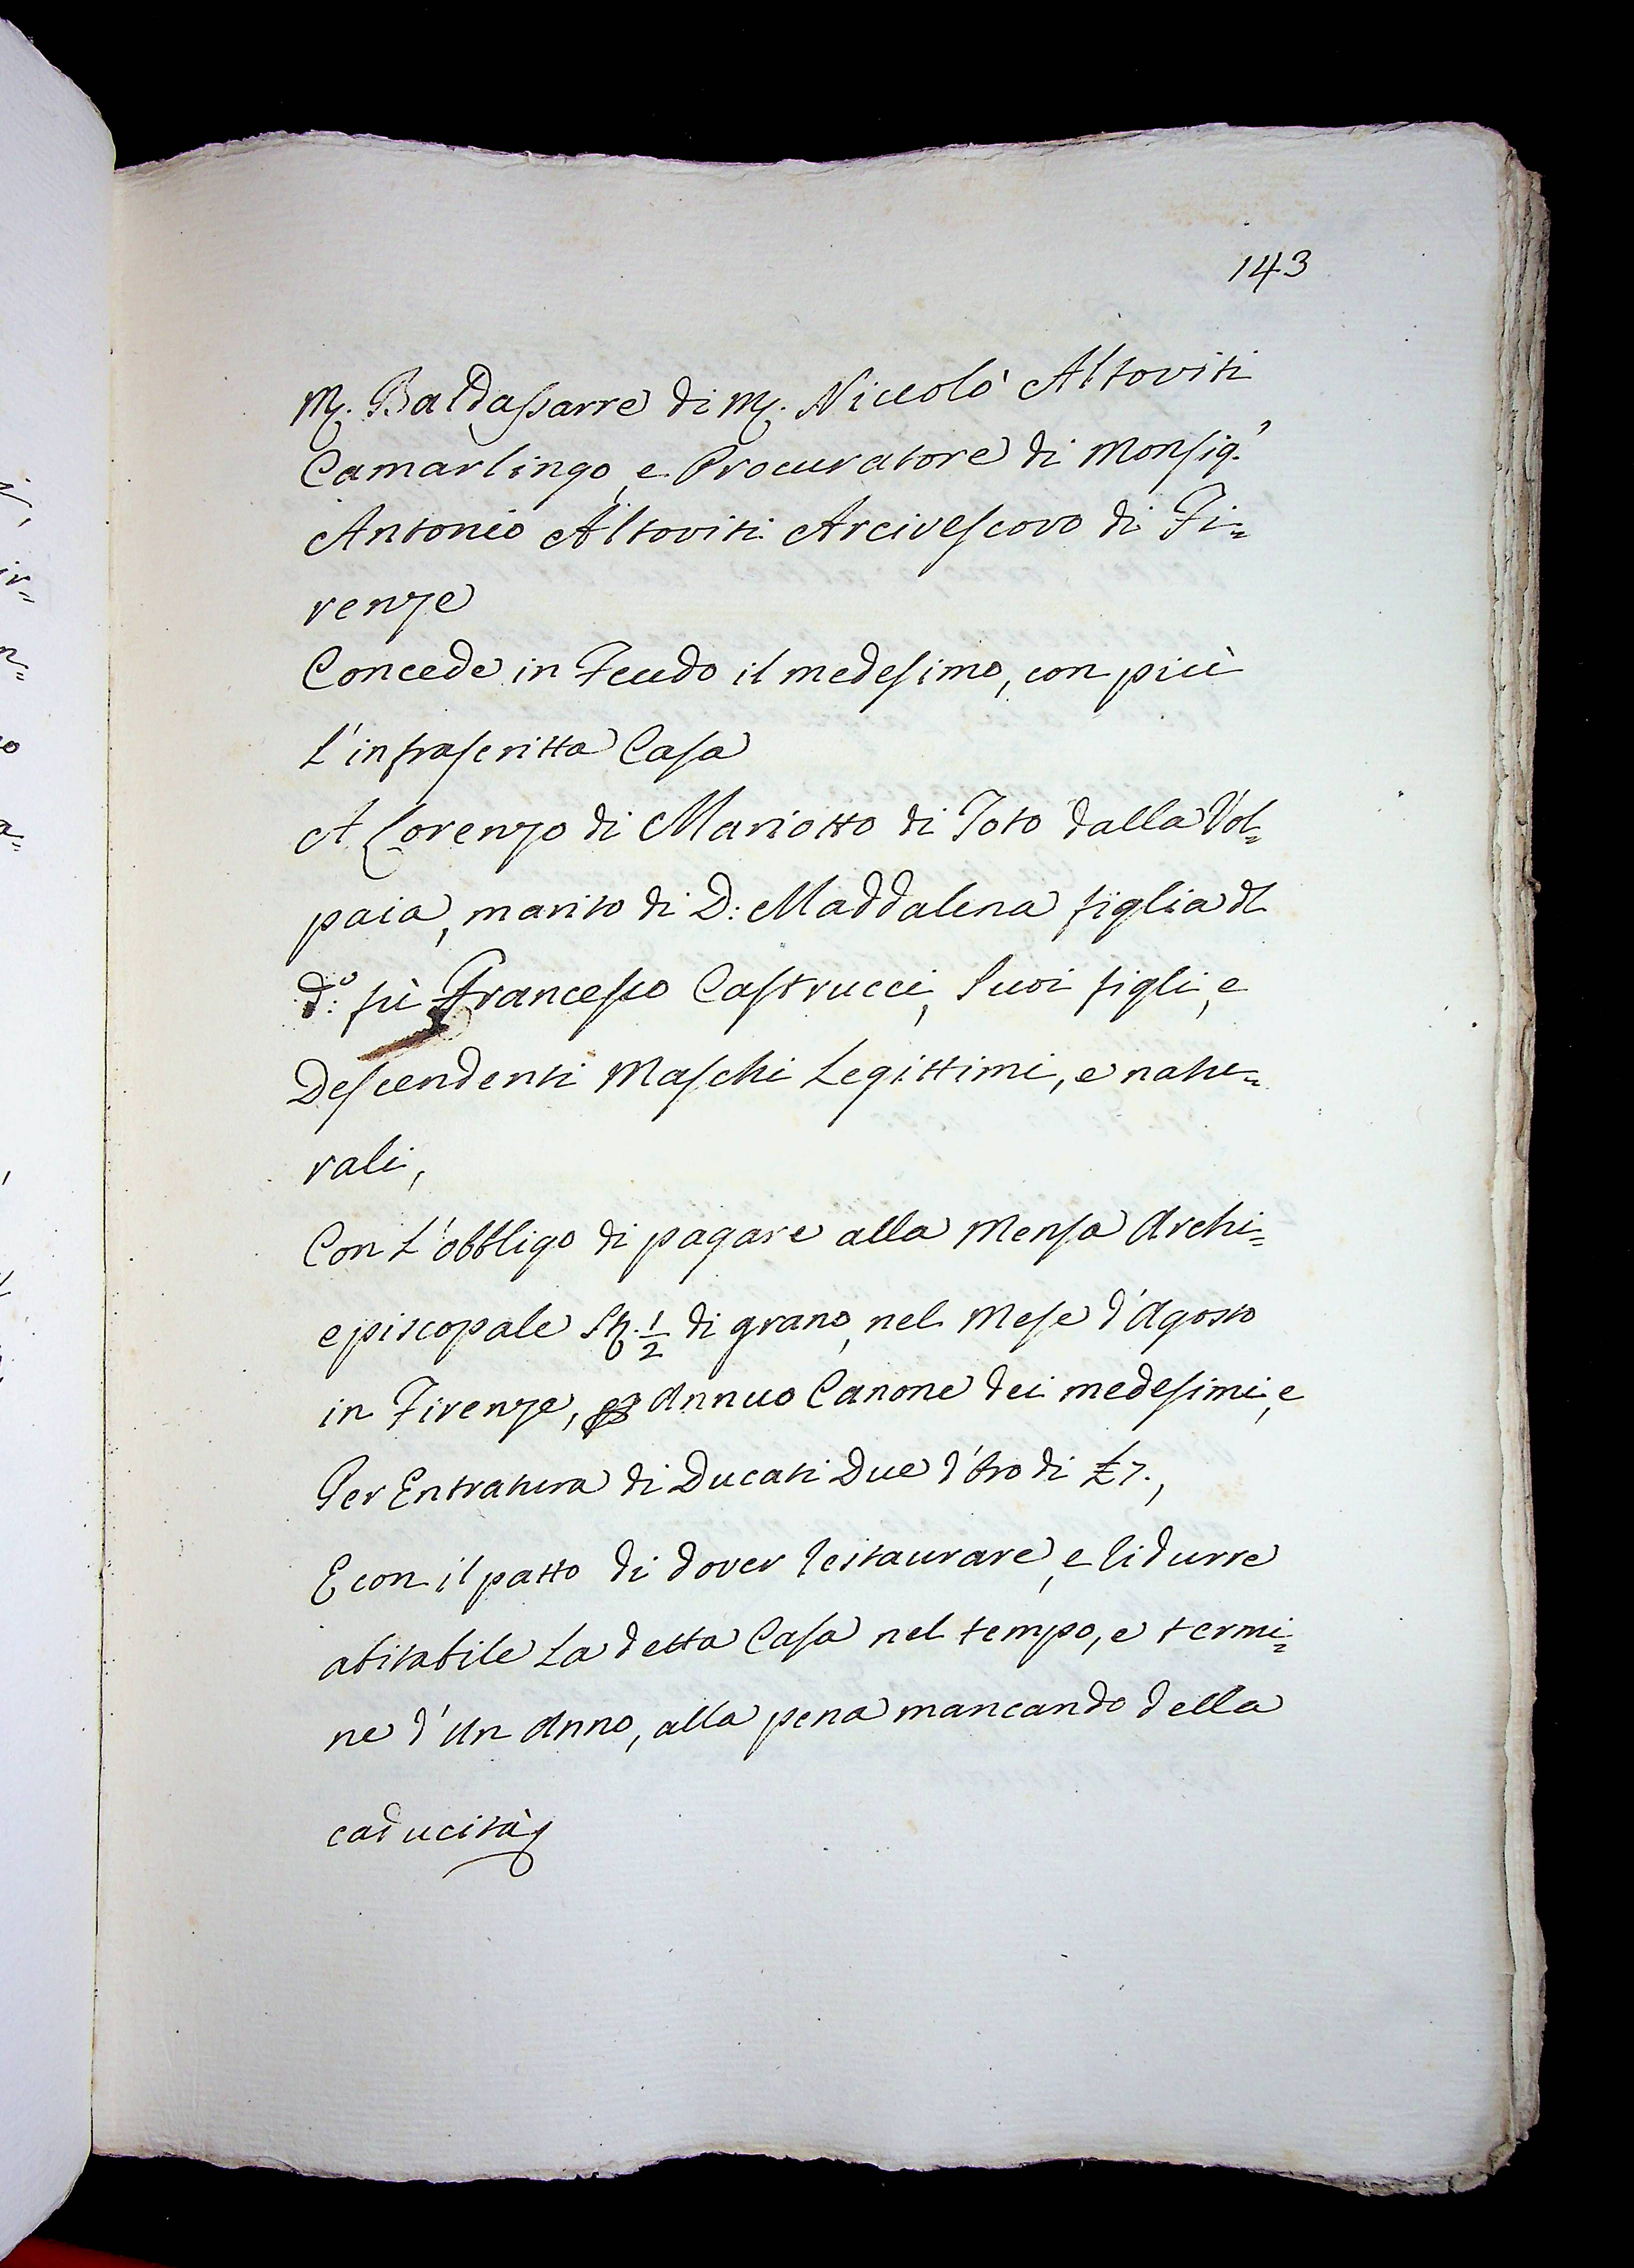 143
M. Baldassarre di M. Niccolò Altoviti
Camarlingo, e Procuratore di Monsig.r
Antonio Altoviti Arcivescovo di Fi=
renze
Concede in Feudo il medesimo, con più
L'infrascritta Casa
A Lorenzo di Mariotto di Toto dalla Vol=
paia, marito di D: Maddalena figlia di
d:o fù Francesco Castrucci, Suoi figli, e
Descendenti Maschi Legittimi, e natu=
rali,
Con L'obbligo di pagare alla Mensa Archi=
episcopale St. 1/2 di grano, nel Mese d'Agosto
in Firenze, Annuo Canone dei medesimi, e
Per Entratura di Ducati Due d'Oro di £7.,
E con il patto di dover restaurare, e ridurre
abitabile La detta Casa nel tempo, e termi=
ne d'un Anno, alla pena mancando della
caducità